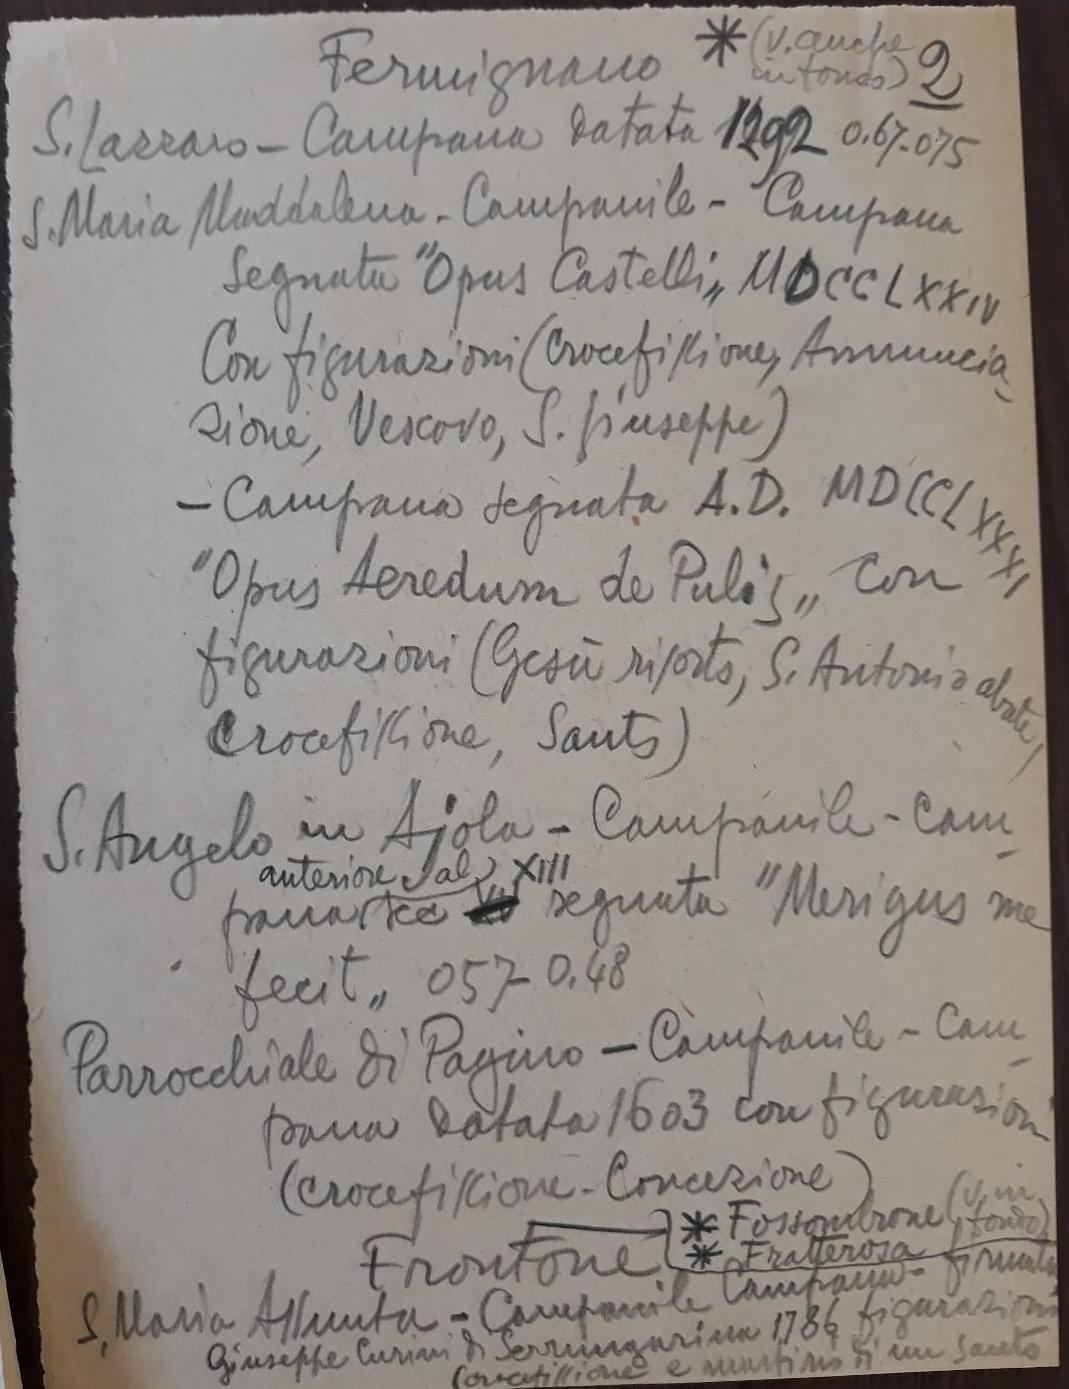 Fermignano * (v. anche in fondo) 2
S. Lazzaro - Campana datata 1292 0.67-075
S. Maria Maddalena - Campanile - Campana
segnata "Opus Castelli„ MDCCLXXIV
Con figurazioni (Crocefissione, Annuncia-
zione, Vescovo, S. Giuseppe)
- Campana segnata A.D. MDCCLXXXI
"Opus Aeredum de Pulis„ con
figurazioni (Gesù risorto, S. Antonio abate,
Crocefissione, Santo)
S. Angelo in Ajola - Campanile - Cam-
anteriore al XIII
pana sec segnata "Merigus me
fecit„ 057-0.48
Parrocchiale di Pagino - Campanile - Cam-
pana datata 1603 con figurazioni
(Crocefissione - Concezione)
* Fossombrone (v. in fondo)
* Fratterosa
Frontone
S. Maria Assunta - Campanile Campana - firmata
Giuseppe Curini di Serrungarina 1786 figurazioni
Crocefissione e martirio di un Santo